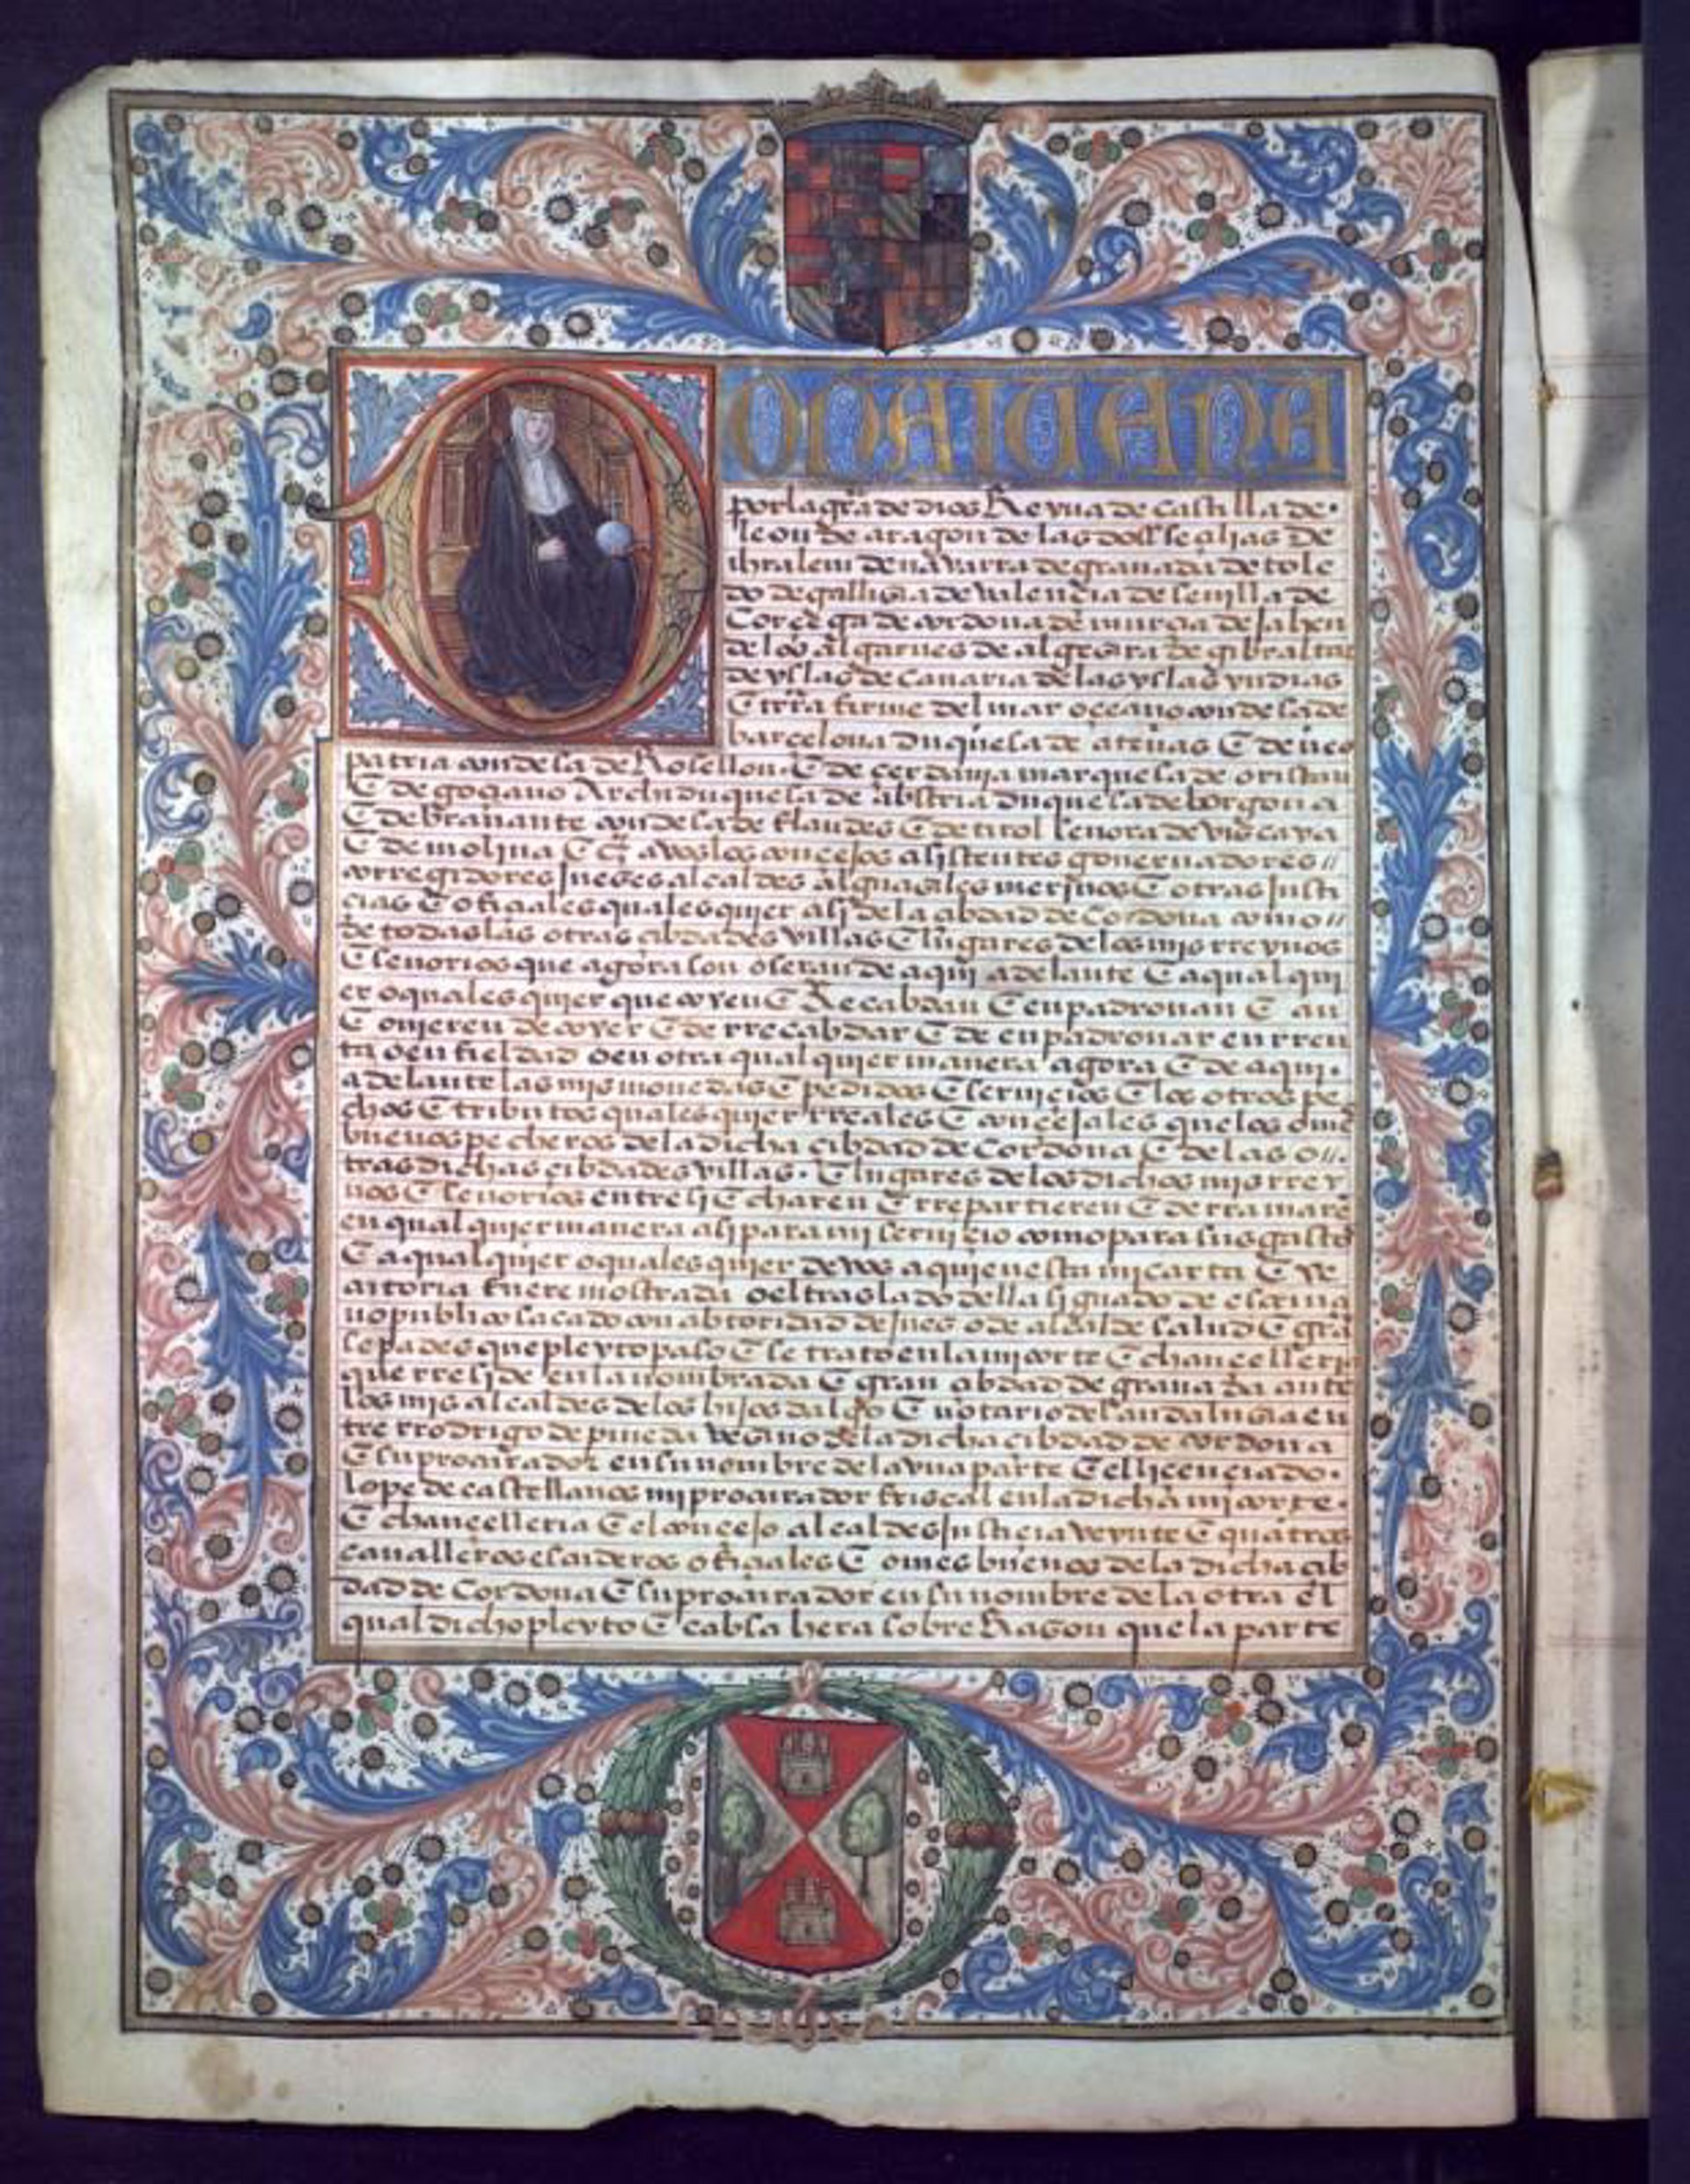 DONA IUANA
por la gr̃a de dios Reyna de castilla de
leon de aragon de las dos seçilias de
ihrľem de navarra de granada de tole
do de gallizia de valençia de sevilla de
Corçega de cordova de murçia de jahen
de los algarues de algezira de gibraltar
de yslas de canaria de las yslas yndias
τ trr̃a firme del mar oçeano condesa de
barçelona duquesa de atenas τ de neo
patria condesa de Rosellon τ de çerdania marquesa de oristan
τ de goçiano Archiduquesa de abstria duquesa de borgoña
τ de bravante condesa de flandes τ de tirol señora de vizcaya
τ de molina τ c̃ a vos los conçejos asistentes governadores //
corregidores jueses alcaldes alguasiles merinos τ otras justi
çias τ ofiçiales qualesquier asi de la çibdad de cordova como //
de todas las otras çibdades villas τ lugares de los mis rreynos
τ señorios que agora son o seran de aqui adelante τ a qual qui
er o quales quier que cojen τ Recabdan τ enpadronan τ an
τ ovieren de cojer τ de rrecabdar τ de enpadronar en rren
ta o en fieldad o en otra qual quier manera agora τ de aqui
adelante las mis monedas τ pedidos τ serviçios τ los otros pe
chos τ tributos quales quier rreales τ conçejales que los omẽs
buenos pecheros de la dicha çibdad de Cordova τ de las o //
tras dichas çibdades villas τ lugares de los dichos mis rrey
nos τ señorios entre si τ charen τ rrepartieren τ derramarẽ
en qual quier manera asi para mi serviçio como para sus gastos
τ a qual quier o quales quier de vos a quien esta mi carta τ xe
cutoria fuere mostrada o el traslado della signado de escriva
no publico sacado con abtoridad de jues o de alcalde salud τ grã
sepades que pleyto paso τ se trato en la mi corte τ chançelleria
que rreside en la nombrada τ gran çibdad de granada ante
los mis alcaldes de los hijos dalgo τ notario del andaluzia en
tre rrodrigo de pineda vezino de la dicha çibdad de cordova
τ su procurador en su nombre de la una parte τ el liçençiado
lope de castellanos mi procurador fiscal en la dicha mi corte
τ chançelleria τ el conçejo alcaldes justiçia veynte τ quatros
cavalleros escuderos ofiçiales τ omes buenos de la dicha çib
dad de Cordova τ su procurador en su nombre de la otra el
qual dicho pleyto τ cabsa hera sobre Razon que la parte